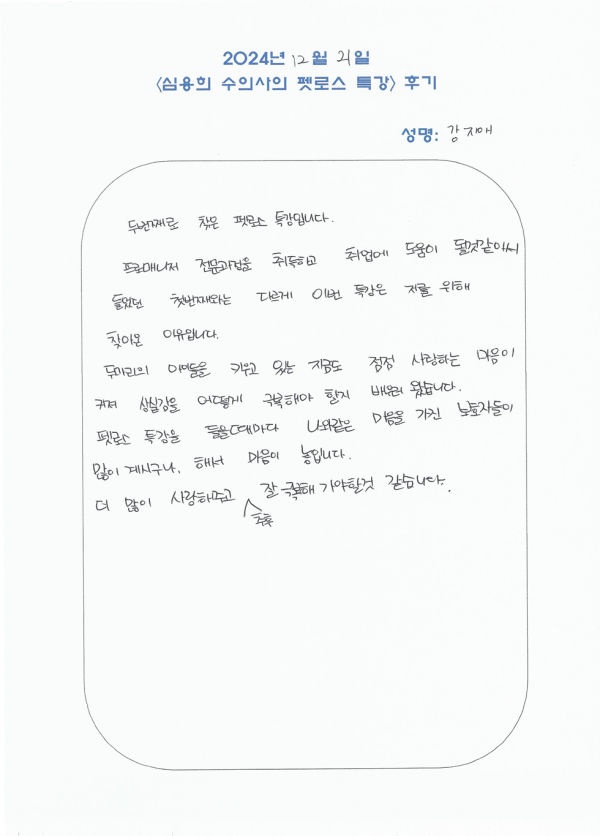 2024년 12월 21일
<심용희 수의사의 펫로스 특강> 후기
성명: 강지애
두번째로 찾은 펫로스 특강입니다.
프로매니저 전문과정을 취득하고 취업에 도움이 될것같아서
들었던 첫번째와는 다르게 이번 특강은 저를 위해
찾아온 이유입니다.
두마리의 아이들을 키우고 있는 지금도 점정 사랑하는 마음이
커져 상실감을 어떻게 극복해야 할지 배우러 왔습니다.
펫로스 특강을 들을때마다 나와같은 마음을 가진 보호자들이
많이 계시구나, 해서 마음이 놓입니다.
더 많이 사랑해주고 추후 잘 극복해 가야할것 같습니다.